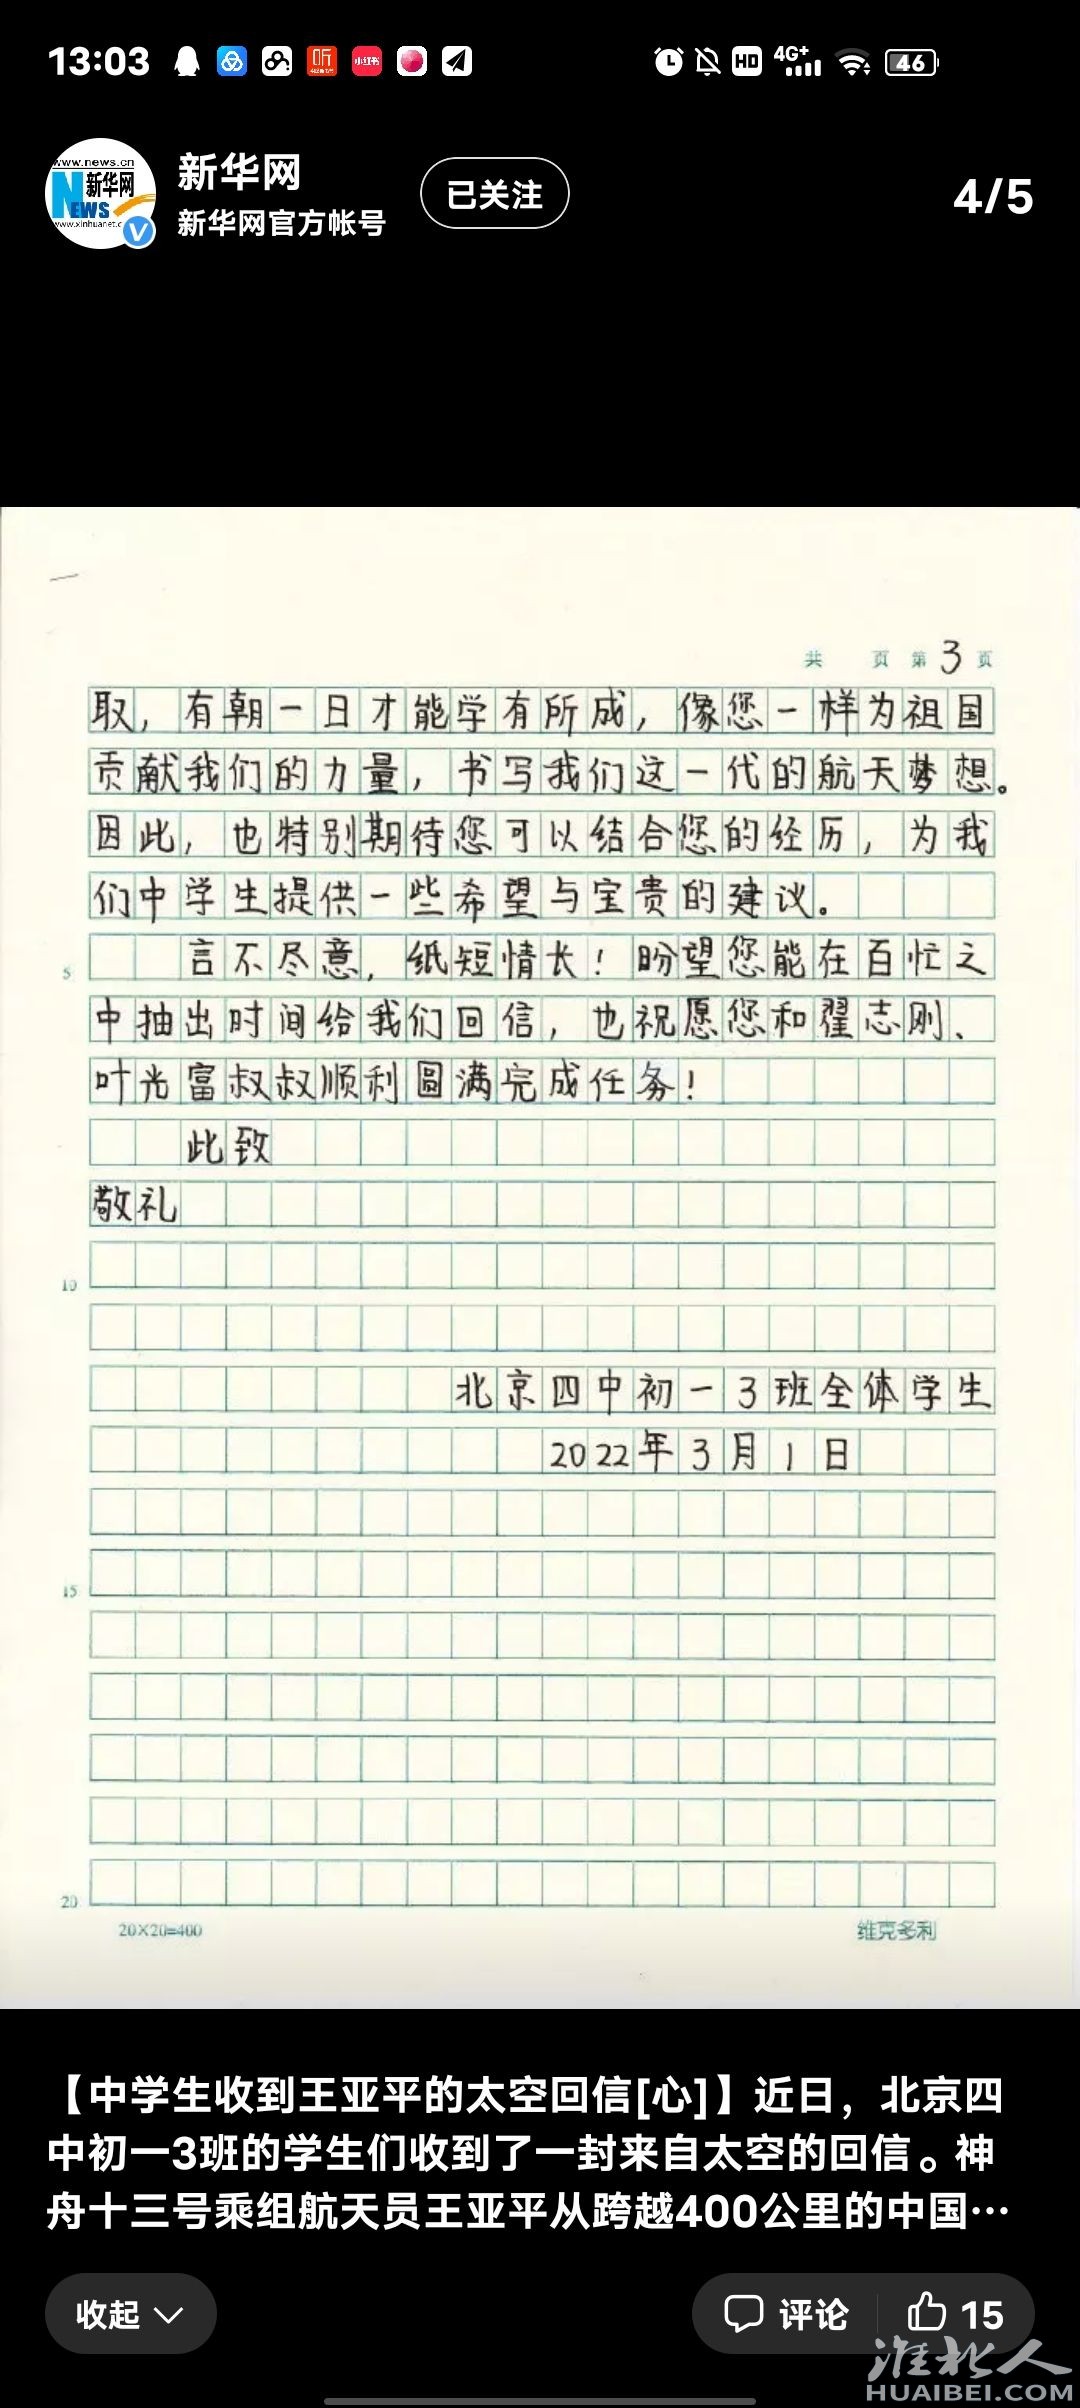 13:03
听
小红书
HD
4G+
46
www.news.cn
新华网
NEWS
新华网
已关注
4/5
新华网官方帐号
共 页 第 3 页
取，有朝一日才能学有所成，像您一样为祖国
贡献我们的力量，书写我们这一代的航天梦想。
因此，也特别期待您可以结合您的经历，为我
们中学生提供一些希望与宝贵的建议。
5
言不尽意，纸短情长！盼望您能在百忙之
中抽出时间给我们回信，也祝愿您和翟志刚、
叶光富叔叔顺利圆满完成任务！
此致
敬礼
10
北京四中初一3班全体学生
2022年3月1日
15
20
20×20=400 维克多利
【中学生收到王亚平的太空回信[心]】近日，北京四
中初一3班的学生们收到了一封来自太空的回信。神
舟十三号乘组航天员王亚平从跨越400公里的中国…
收起
评论
15
淮北人
HUAIBEI.COM